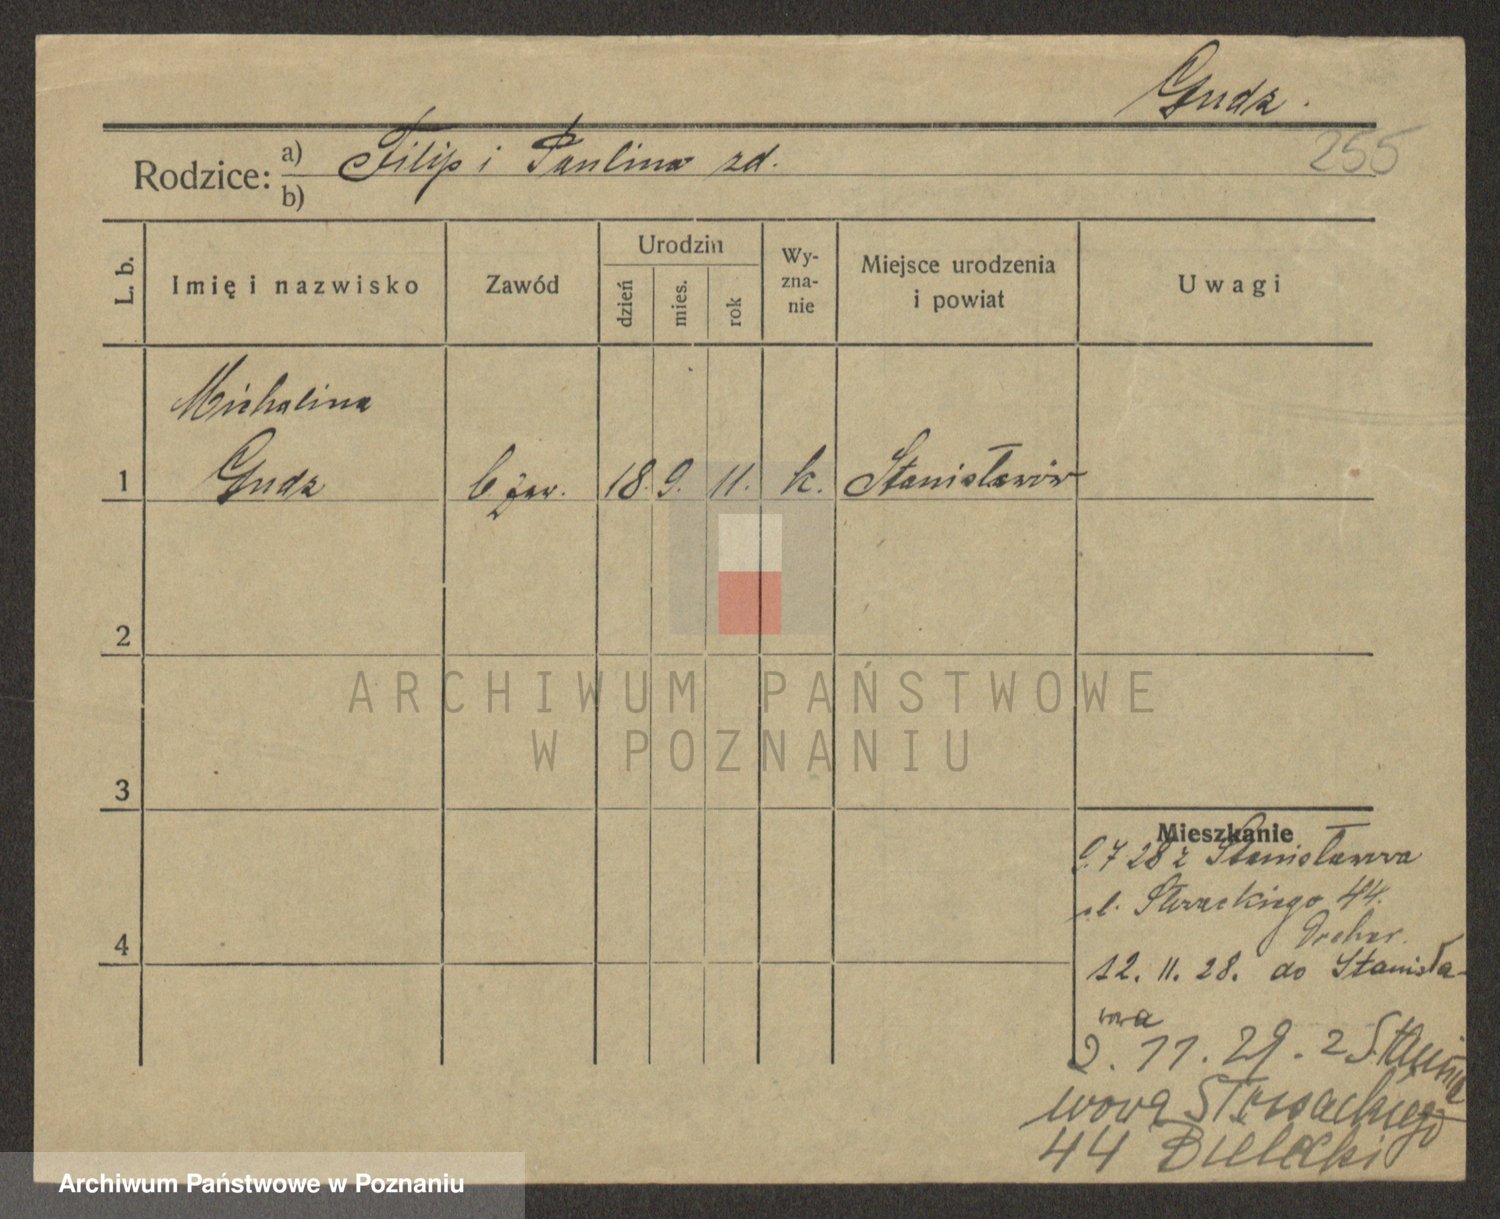 Gudz.
255
Rodzice: a) Filip i Paulina zd.
b)
L. b.
Imię i nazwisko
Zawód
Urodzin
dzień
mies.
rok
Wy-
zna-
nie
Miejsce urodzenia
i powiat
Uwagi
Michalina
1 Gudz b zaw. 18. 9. 11. k. Stanisławów
2
3
4
Mieszkanie
9.7 28 z Stanisławowa
ul. 44.
12. 11. 28. do Stanisła-
wowa
2. 11. 29. z Stanisła
wowa
44 Bielecki
ARCHIWUM PAŃSTWOWE
W POZNANIU
Archiwum Państwowe w Poznaniu